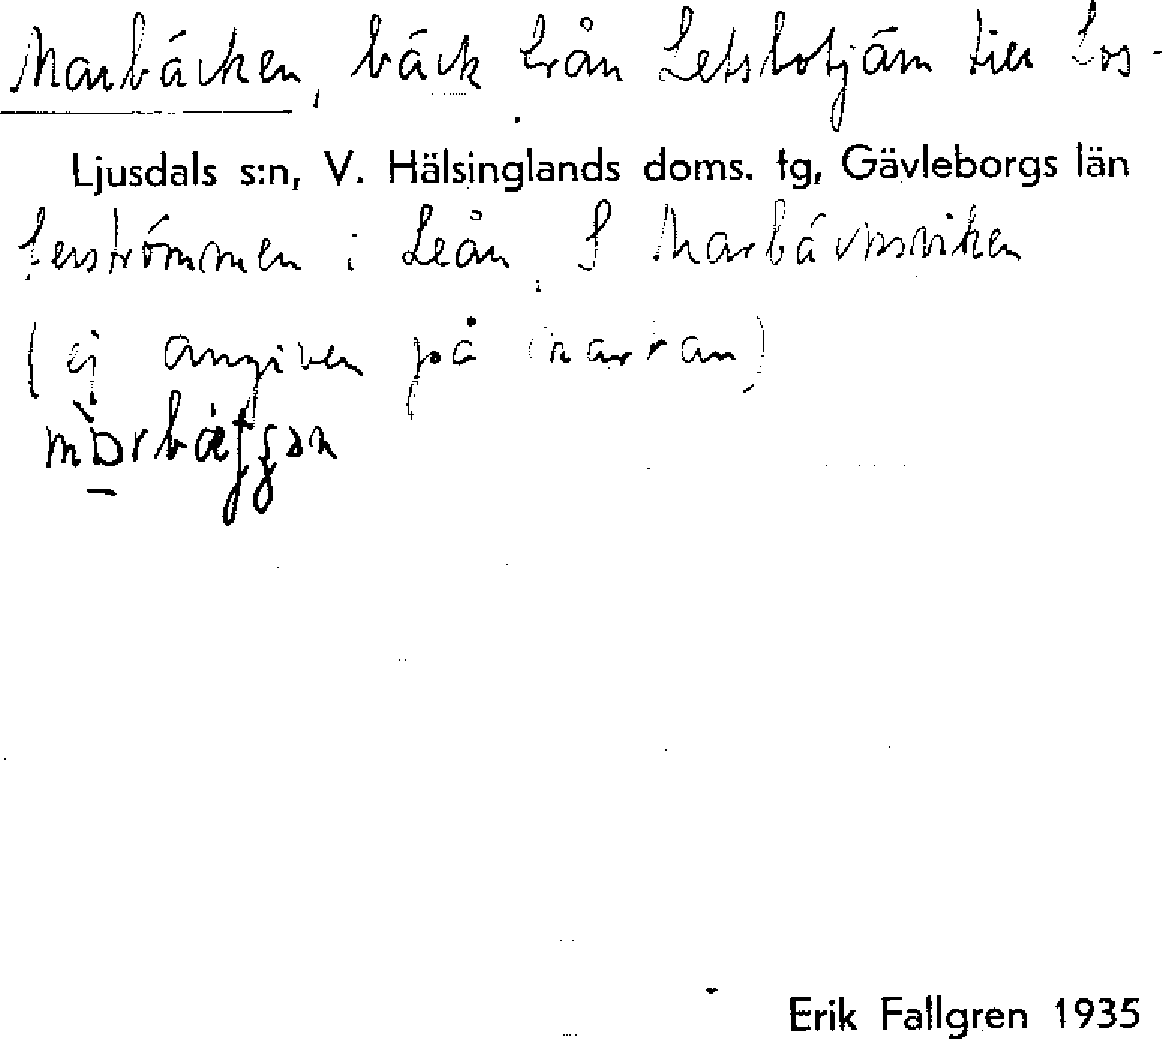 Marbäcken, bäck från Letsbotjärn till Los-
Ljusdals s:n, V. Hälsinglands doms. tg, Gävleborgs län
i Leån. S Marbäcksviken
(ej angiven på kartan)
Erik Fallgren 1935